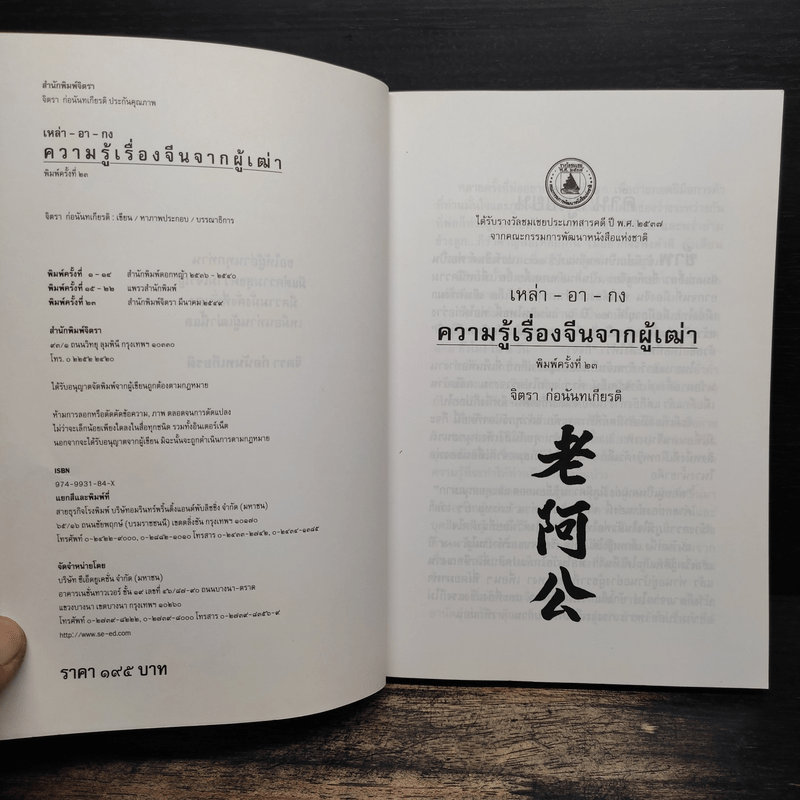 สำนักพิมพ์จิตรา
จิตรา ก่อนันทเกียรติ ประกันคุณภาพ
เหล่า – อา – กง
ความรู้เรื่องจีนจากผู้เฒ่า
พิมพ์ครั้งที่ ๒๓
จิตรา ก่อนันทเกียรติ : เขียน / หาภาพประกอบ / บรรณาธิการ
พิมพ์ครั้งที่ ๑ - ๑๔ สำนักพิมพ์ดอกหญ้า ๒๕๓๖ - ๒๕๔๐
พิมพ์ครั้งที่ ๑๕ - ๒๒ แพรวสำนักพิมพ์
พิมพ์ครั้งที่ ๒๓ สำนักพิมพ์จิตรา มีนาคม ๒๕๔๙
สำนักพิมพ์จิตรา
๙๓/๑ ถนนวิทยุ ลุมพินี กรุงเทพฯ ๑๐๓๓๐
โทร. ๐ ๒๒๕๒ ๒๔๒๐
ได้รับอนุญาตจัดพิมพ์จากผู้เขียนถูกต้องตามกฎหมาย
ห้ามการลอกหรือตัดคัดข้อความ, ภาพ ตลอดจนการดัดแปลง
ไม่ว่าจะเล็กน้อยเพียงใดลงในสื่อทุกชนิด รวมทั้งอินเตอร์เน็ต
นอกจากจะได้รับอนุญาตจากผู้เขียน มิฉะนั้นจะถูกดำเนินการตามกฎหมาย
ISBN
974-9931-84-X
แยกสีและพิมพ์ที่
สายธุรกิจโรงพิมพ์ บริษัทอมรินทร์พริ้นติ้งแอนด์พับลิชชิ่ง จำกัด (มหาชน)
๖๕/๑๖ ถนนชัยพฤกษ์ (บรมราชชนนี) เขตตลิ่งชัน กรุงเทพฯ ๑๐๑๗๐
โทรศัพท์ ๐-๒๔๒๒-๙๐๐๐, ๐-๒๘๘๒-๑๐๑๐ โทรสาร ๐-๒๔๓๓-๒๗๔๒, ๐-๒๔๓๔-๑๓๘๕
จัดจำหน่ายโดย
บริษัท ซีเอ็ดยูเคชั่น จำกัด (มหาชน)
อาคารเนชั่นทาวเวอร์ ชั้น ๑๙ เลขที่ ๔๖/๘๗-๙๐ ถนนบางนา-ตราด
แขวงบางนา เขตบางนา กรุงเทพฯ ๑๐๒๖๐
โทรศัพท์ ๐-๒๗๓๙-๘๒๒๒, ๐-๒๗๓๙-๘๐๐๐ โทรสาร ๐-๒๗๓๙-๘๓๕๖-๙
http://www.se-ed.com
ราคา ๑๙๕ บาท
ได้รับรางวัลชมเชยประเภทสารคดี ปี พ.ศ. ๒๕๓๗
จากคณะกรรมการพัฒนาหนังสือแห่งชาติ
เหล่า – อา – กง
ความรู้เรื่องจีนจากผู้เฒ่า
พิมพ์ครั้งที่ ๒๓
จิตรา ก่อนันทเกียรติ
老
阿
公